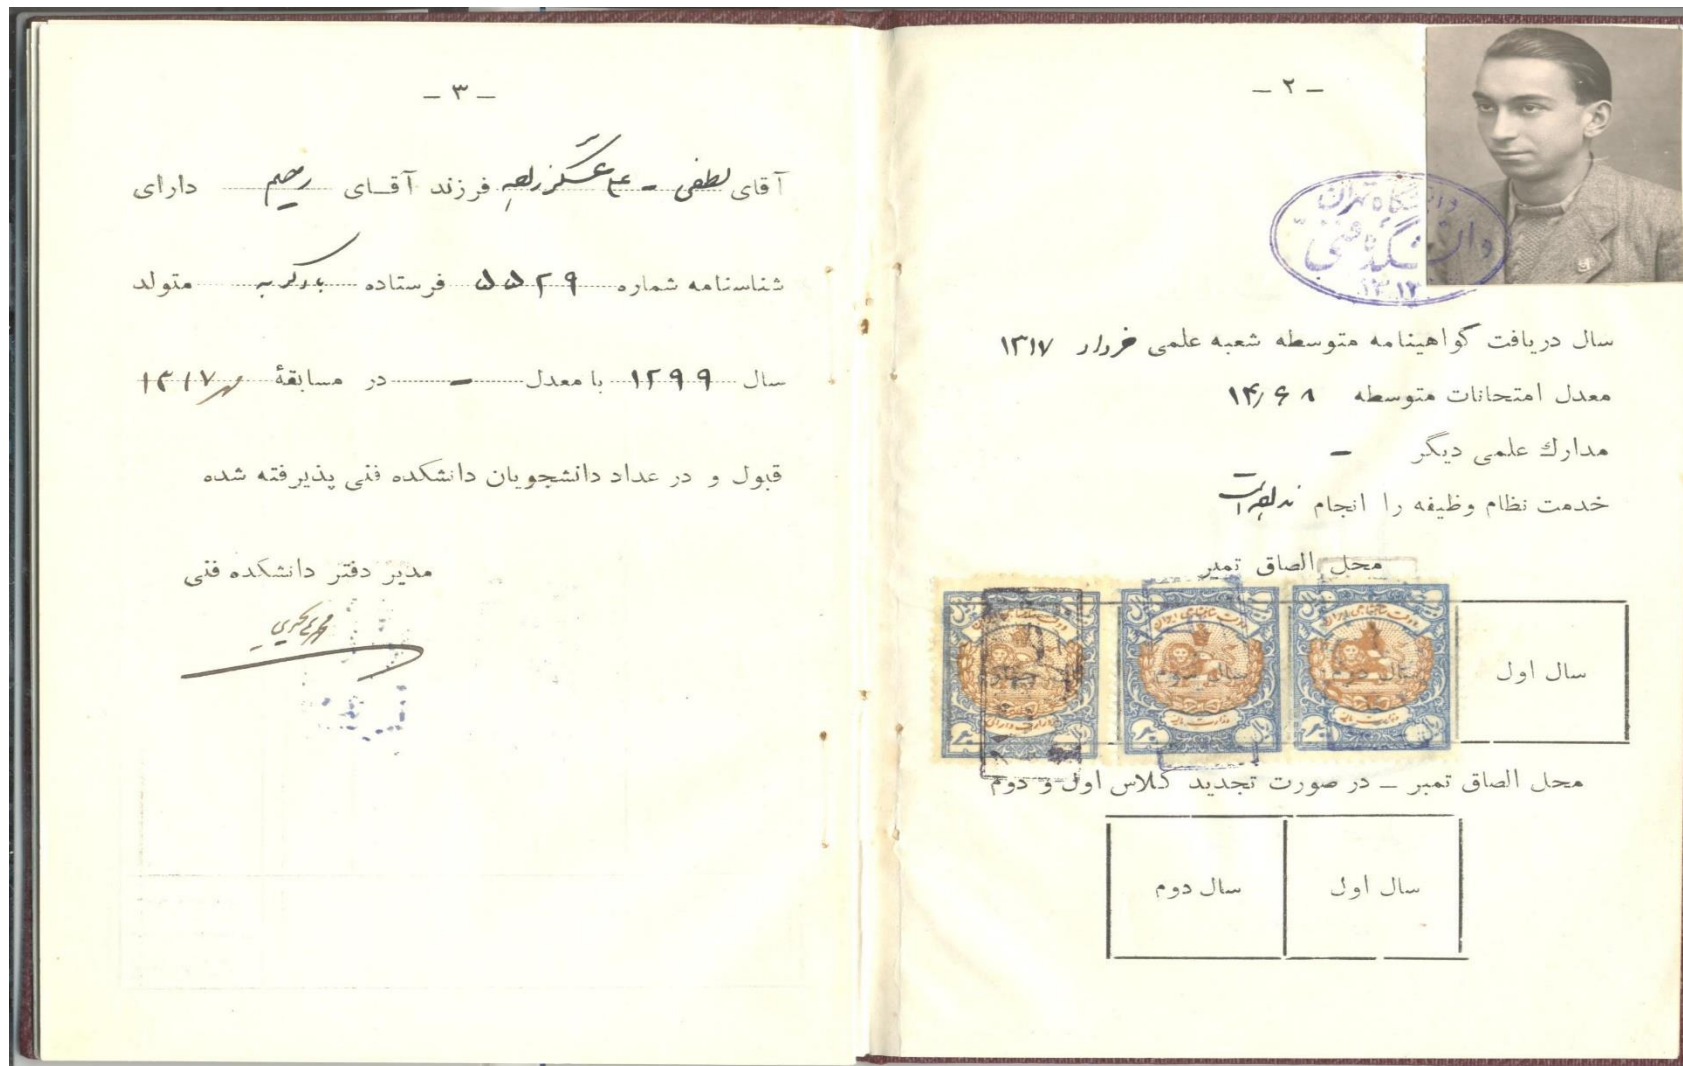 - ۲ -
دانشگاه تهران
دانشکده فنی
۱۳۱۳
سال دریافت گواهینامه متوسطه شعبه علمی خرداد ۱۳۱۷
معدل امتحانات متوسطه ۱۴/۶۸
مدارك علمی دیگر -
خدمت نظام وظیفه را انجام نداده است
محل الصاق تمبر
سال اول
سال دوم
سال سوم
محل الصاق تمبر - در صورت تجدید کلاس اول و دوم
سال اول
سال دوم
- ۳ -
آقای لطفی فرزند آقـای رحیم دارای
شناسنامه شماره ۵۵۲۹ فرستاده متولد
سال ۱۲۹۹ با معدل - در مسابقهٔ مهر ۱۳۱۷
قبول و در عداد دانشجویان دانشکده فنی پذیرفته شده
مدیر دفتر دانشکده فنی